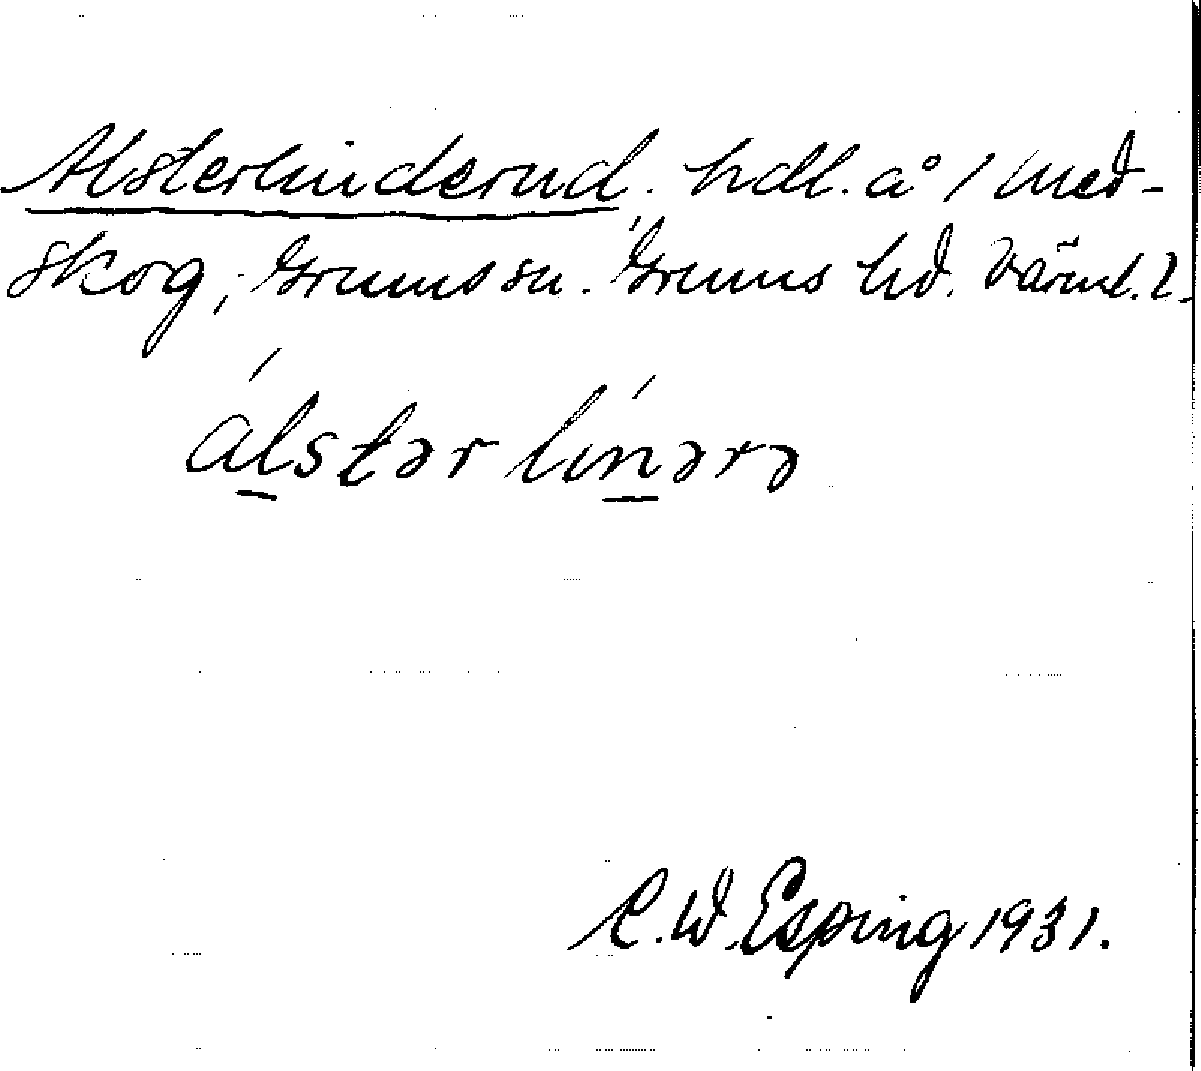 Alsterlinderud. hdl. å 1 Med-
skog, Grums sn. Grums hd. Värml. l.
álstər línərə
C. W. Esping 1931.